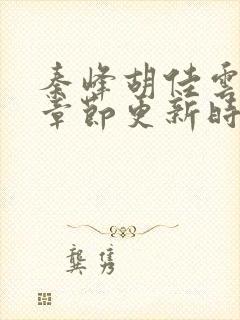 秦峰胡佳雲
章節更新時
龔雋